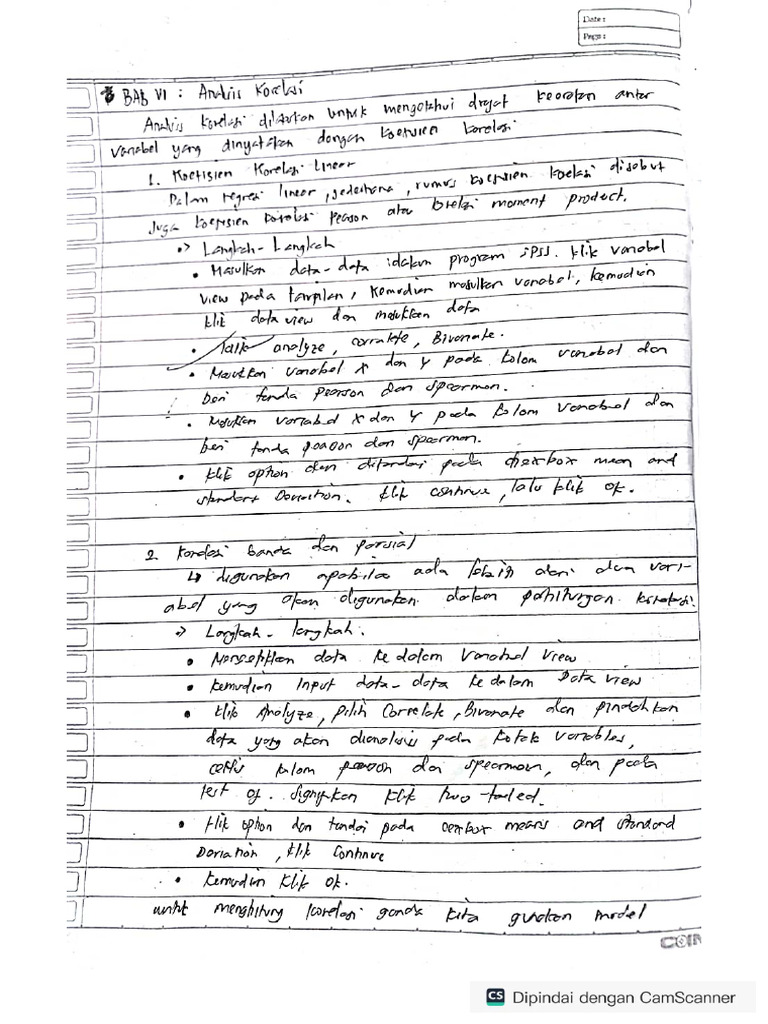 Date :
Page :
BAB VI : Analisis Korelasi
Analisis korelasi dilakukan untuk mengetahui drajat keeratan antar
variabel yang dinyatakan dengan koefisien korelasi
1. Koefisien Korelasi Linear
Dalam regresi linear, sederhana, rumus koefisien korelasi disebut
juga koefisien korelasi Pearson atau moment product.
•> Langkah-Langkah
• Masukkan data-data idalam program SPSS. klik variabel
view pada tampilan, kemudian masukkan variabel, kemudian
klik data view dan masukkan data
• klik analyze, correlate, Bivariate.
• Masukkan variabel X dan Y pada kolom variabel dan
beri tanda pearson dan spearman.
• Masukkan variabel X dan Y pada kolom variabel dan
beri tanda pearson dan spearman.
• klik option dan ditandai pada chexbox mean and
standart Deviation. klik continue, lalu klik ok.
2. Korelasi Ganda dan parsial
↳ digunakan apabila ada lebih dari dua vari-
abel yang akan digunakan dalam perhitungan korelasi.
=> Langkah-langkah :
• data ke dalam Variabel View
• kemudian Input data-data ke dalam Data view
• klik Analyze, pilih Correlate, Bivariate dan pindahkan
data yang akan dianalisis pada kotak variables,
ceklis kolom pearson dan spearman, dan pada
test of. klik two-tailed.
• klik option dan tandai pada cexbox means and standard
Deviation, klik Continue
• kemudian klik ok.
untuk menghitung korelasi ganda kita gunakan model
COIN
CS Dipindai dengan CamScanner